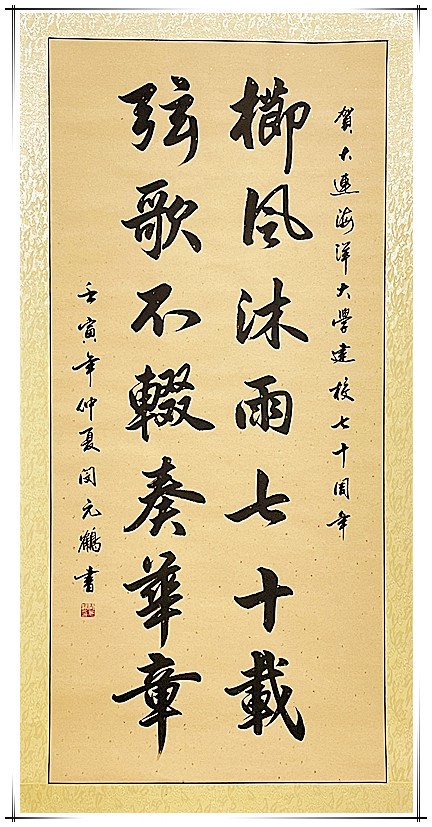 賀大連海洋大學建校七十周年
櫛风沐雨七十載
弦歌不輟奏華章
壬寅年仲夏闵元鶴書